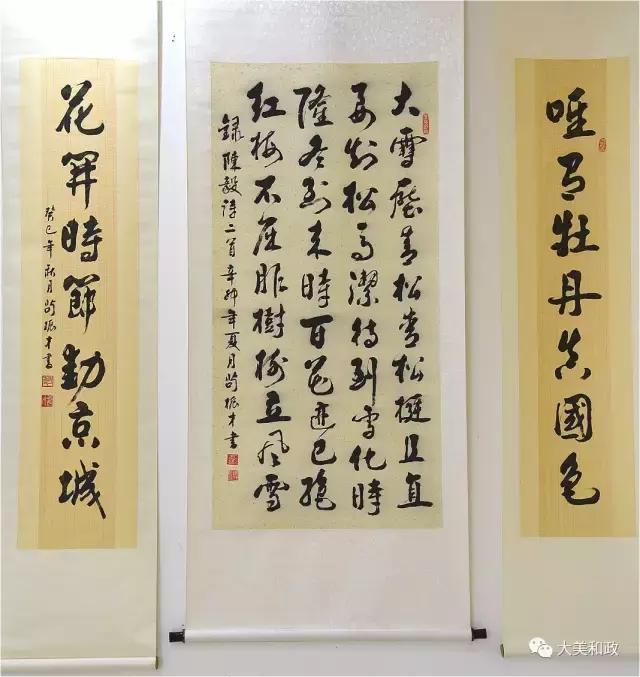 唯有牡丹真國色
大雪壓青松青松挺且直
要知松高潔待到雪化時
隆冬到来時百花迹已绝
红梅不屈服樹樹立風雪
錄陳毅诗二首辛卯年夏月苟振才書
花開時節動京城
癸巳年秋月苟振才書
大美和政